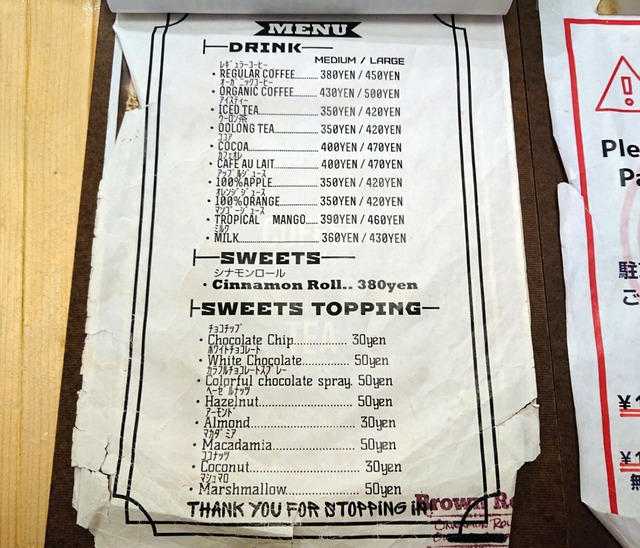 MENU
DRINK
MEDIUM / LARGE
レギュラーコーヒー
・REGULAR COFFEE......... 380YEN / 450YEN
オーガニックコーヒー
・ORGANIC COFFEE......... 430YEN / 500YEN
アイスティー
・ICED TEA......... 350YEN / 420YEN
ウーロン茶
・OOLONG TEA......... 350YEN / 420YEN
ココア
・COCOA......... 400YEN / 470YEN
カフェオレ
・CAFE AU LAIT......... 400YEN / 470YEN
アップルジュース
・100%APPLE......... 350YEN / 420YEN
オレンジジュース
・100%ORANGE......... 350YEN / 420YEN
マンゴージュース
・TROPICAL MANGO..... 390YEN / 460YEN
ミルク
・MILK......... 360YEN / 430YEN
SWEETS
シナモンロール
・Cinnamon Roll.. 380yen
SWEETS TOPPING
チョコチップ
・Chocolate Chip......... 30yen
ホワイトチョコレート
・White Chocolate......... 50yen
カラフルチョコレートスプレー
・Colorful chocolate spray. 50yen
ヘーゼルナッツ
・Hazelnut......... 50yen
アーモンド
・Almond......... 30yen
マカダミア
・Macadamia......... 50yen
ココナッツ
・Coconut......... 30yen
マシュマロ
・Marshmallow......... 50yen
THANK YOU FOR STOPPING IN
Brown
CINNAMON
Ple
Pa
駐
ご
¥1
¥1
無